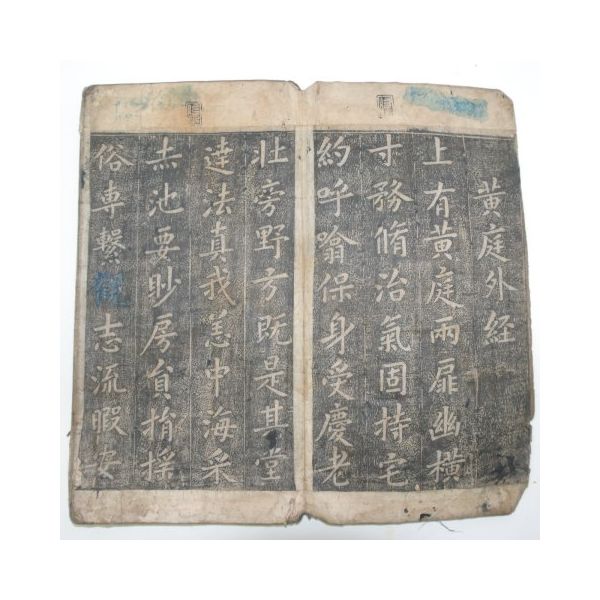 黃庭外経
上有黃庭兩扉幽橫
寸務脩治氣固持宅
約呼噏保身受慶老
壯旁野方既是其堂
達法真我恙中海采
赤池要眇房負揹採
俗専繫觀志流暇安